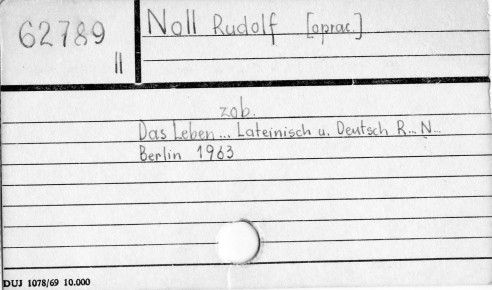 62789
II
Noll Rudolf [oprac.]
zob.
Das Leben... Lateinisch u. Deutsch R... N...
Berlin 1963
DUJ 1078/69 10.000